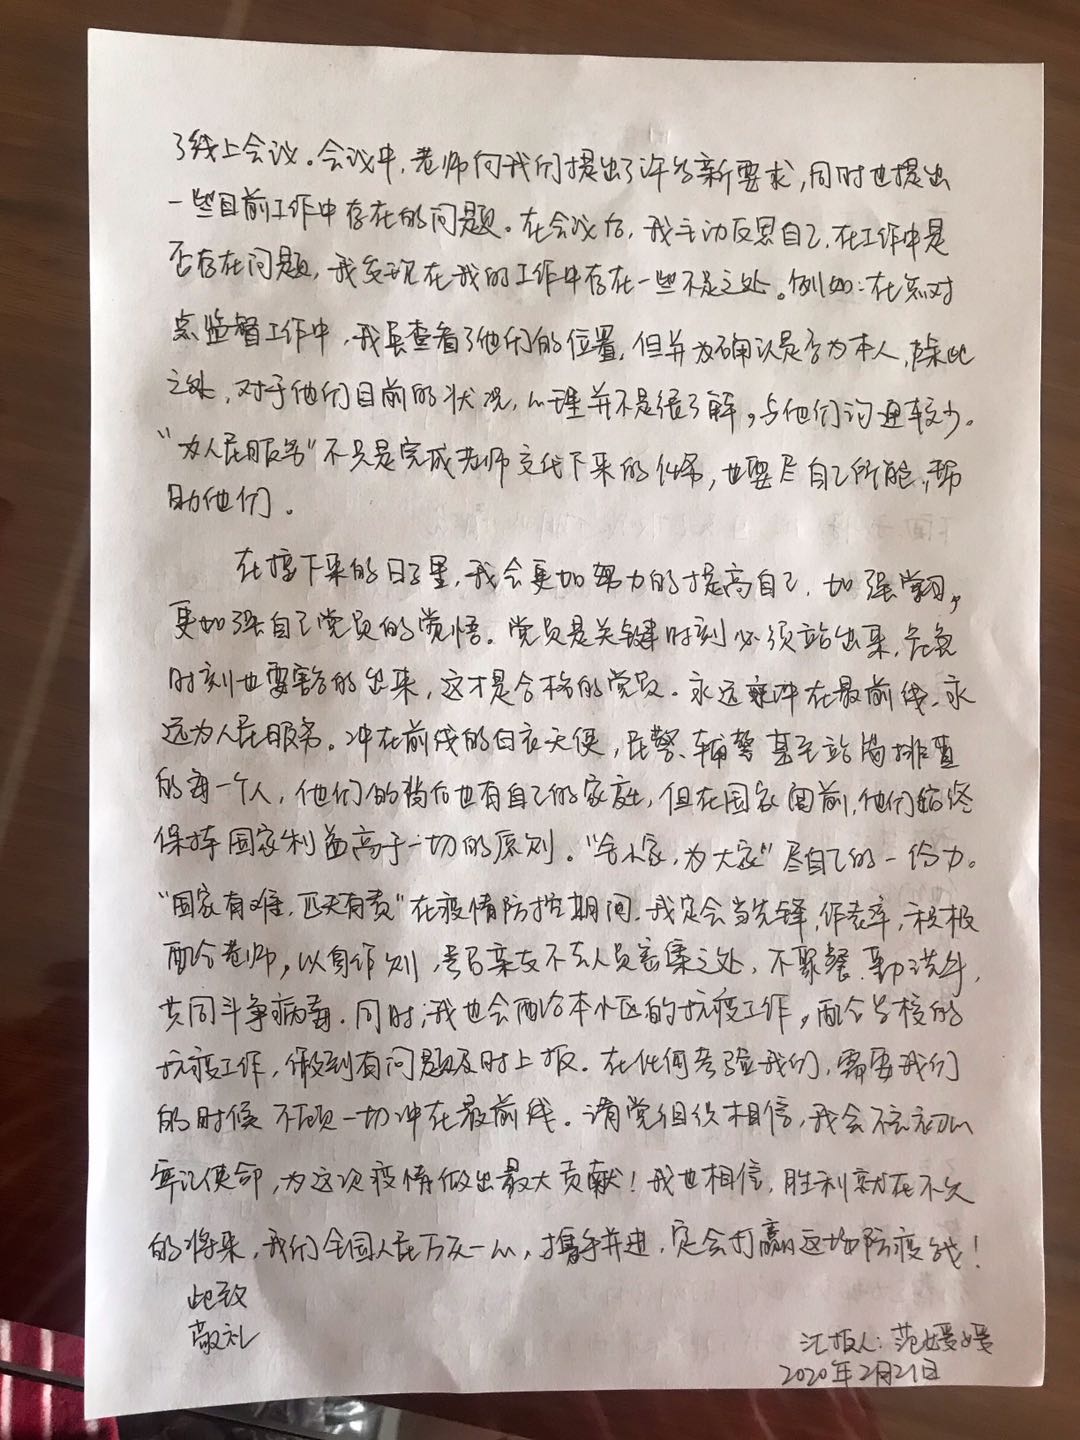 了线上会议。会议中，老师向我们提出了许多新要求，同时也提出
一些目前工作中存在的问题。在会议后，我主动反思自己，在工作中是
否存在问题，我发现在我的工作中存在一些不足之处。例如：在点对
点监督工作中，我虽查看了他们的位置，但并为确认是否为本人，除此
之处，对于他们目前的状况，心理并不是很了解，与他们沟通较少。
“为人民服务”不只是完成老师交代下来的任务，也要尽自己所能，帮
助他们。
在接下来的日子里，我会更加努力的提高自己，加强学习，
更加强自己党员的觉悟。党员是关键时刻必须站出来，危急
时刻也要豁的出来，这才是合格的党员。永远冲在最前线，永
远为人民服务。冲在前线的白衣天使，民警、辅警甚至站岗排查
的每一个人，他们的背后也有自己的家庭，但在国家面前，他们始终
保持国家利益高于一切的原则。“舍小家，为大家”尽自己的一份力。
“国家有难，匹夫有责”在疫情防控期间，我定会当先锋，作表率，积极
配合老师，以身作则，号召亲友不去人员密集之处，不聚餐、勤洗手，
共同斗争病毒。同时，我也会配合本小区的抗疫工作，配合学校的
抗疫工作，做到有问题及时上报。在任何考验我们，需要我们
的时候不顾一切冲在最前线。请党组织相信，我会不忘初心
牢记使命，为这次疫情做出最大贡献！我也相信，胜利就在不久
的将来，我们全国人民万众一心，携手并进，定会打赢这场防疫战！
此致
敬礼
汇报人：范媛媛
2020年2月21日